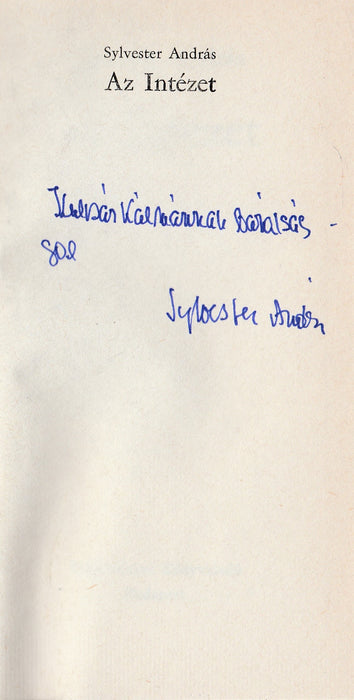 Sylvester András
Az Intézet
Kulcsár Kálmánnak barátság-
gal
Sylvester András